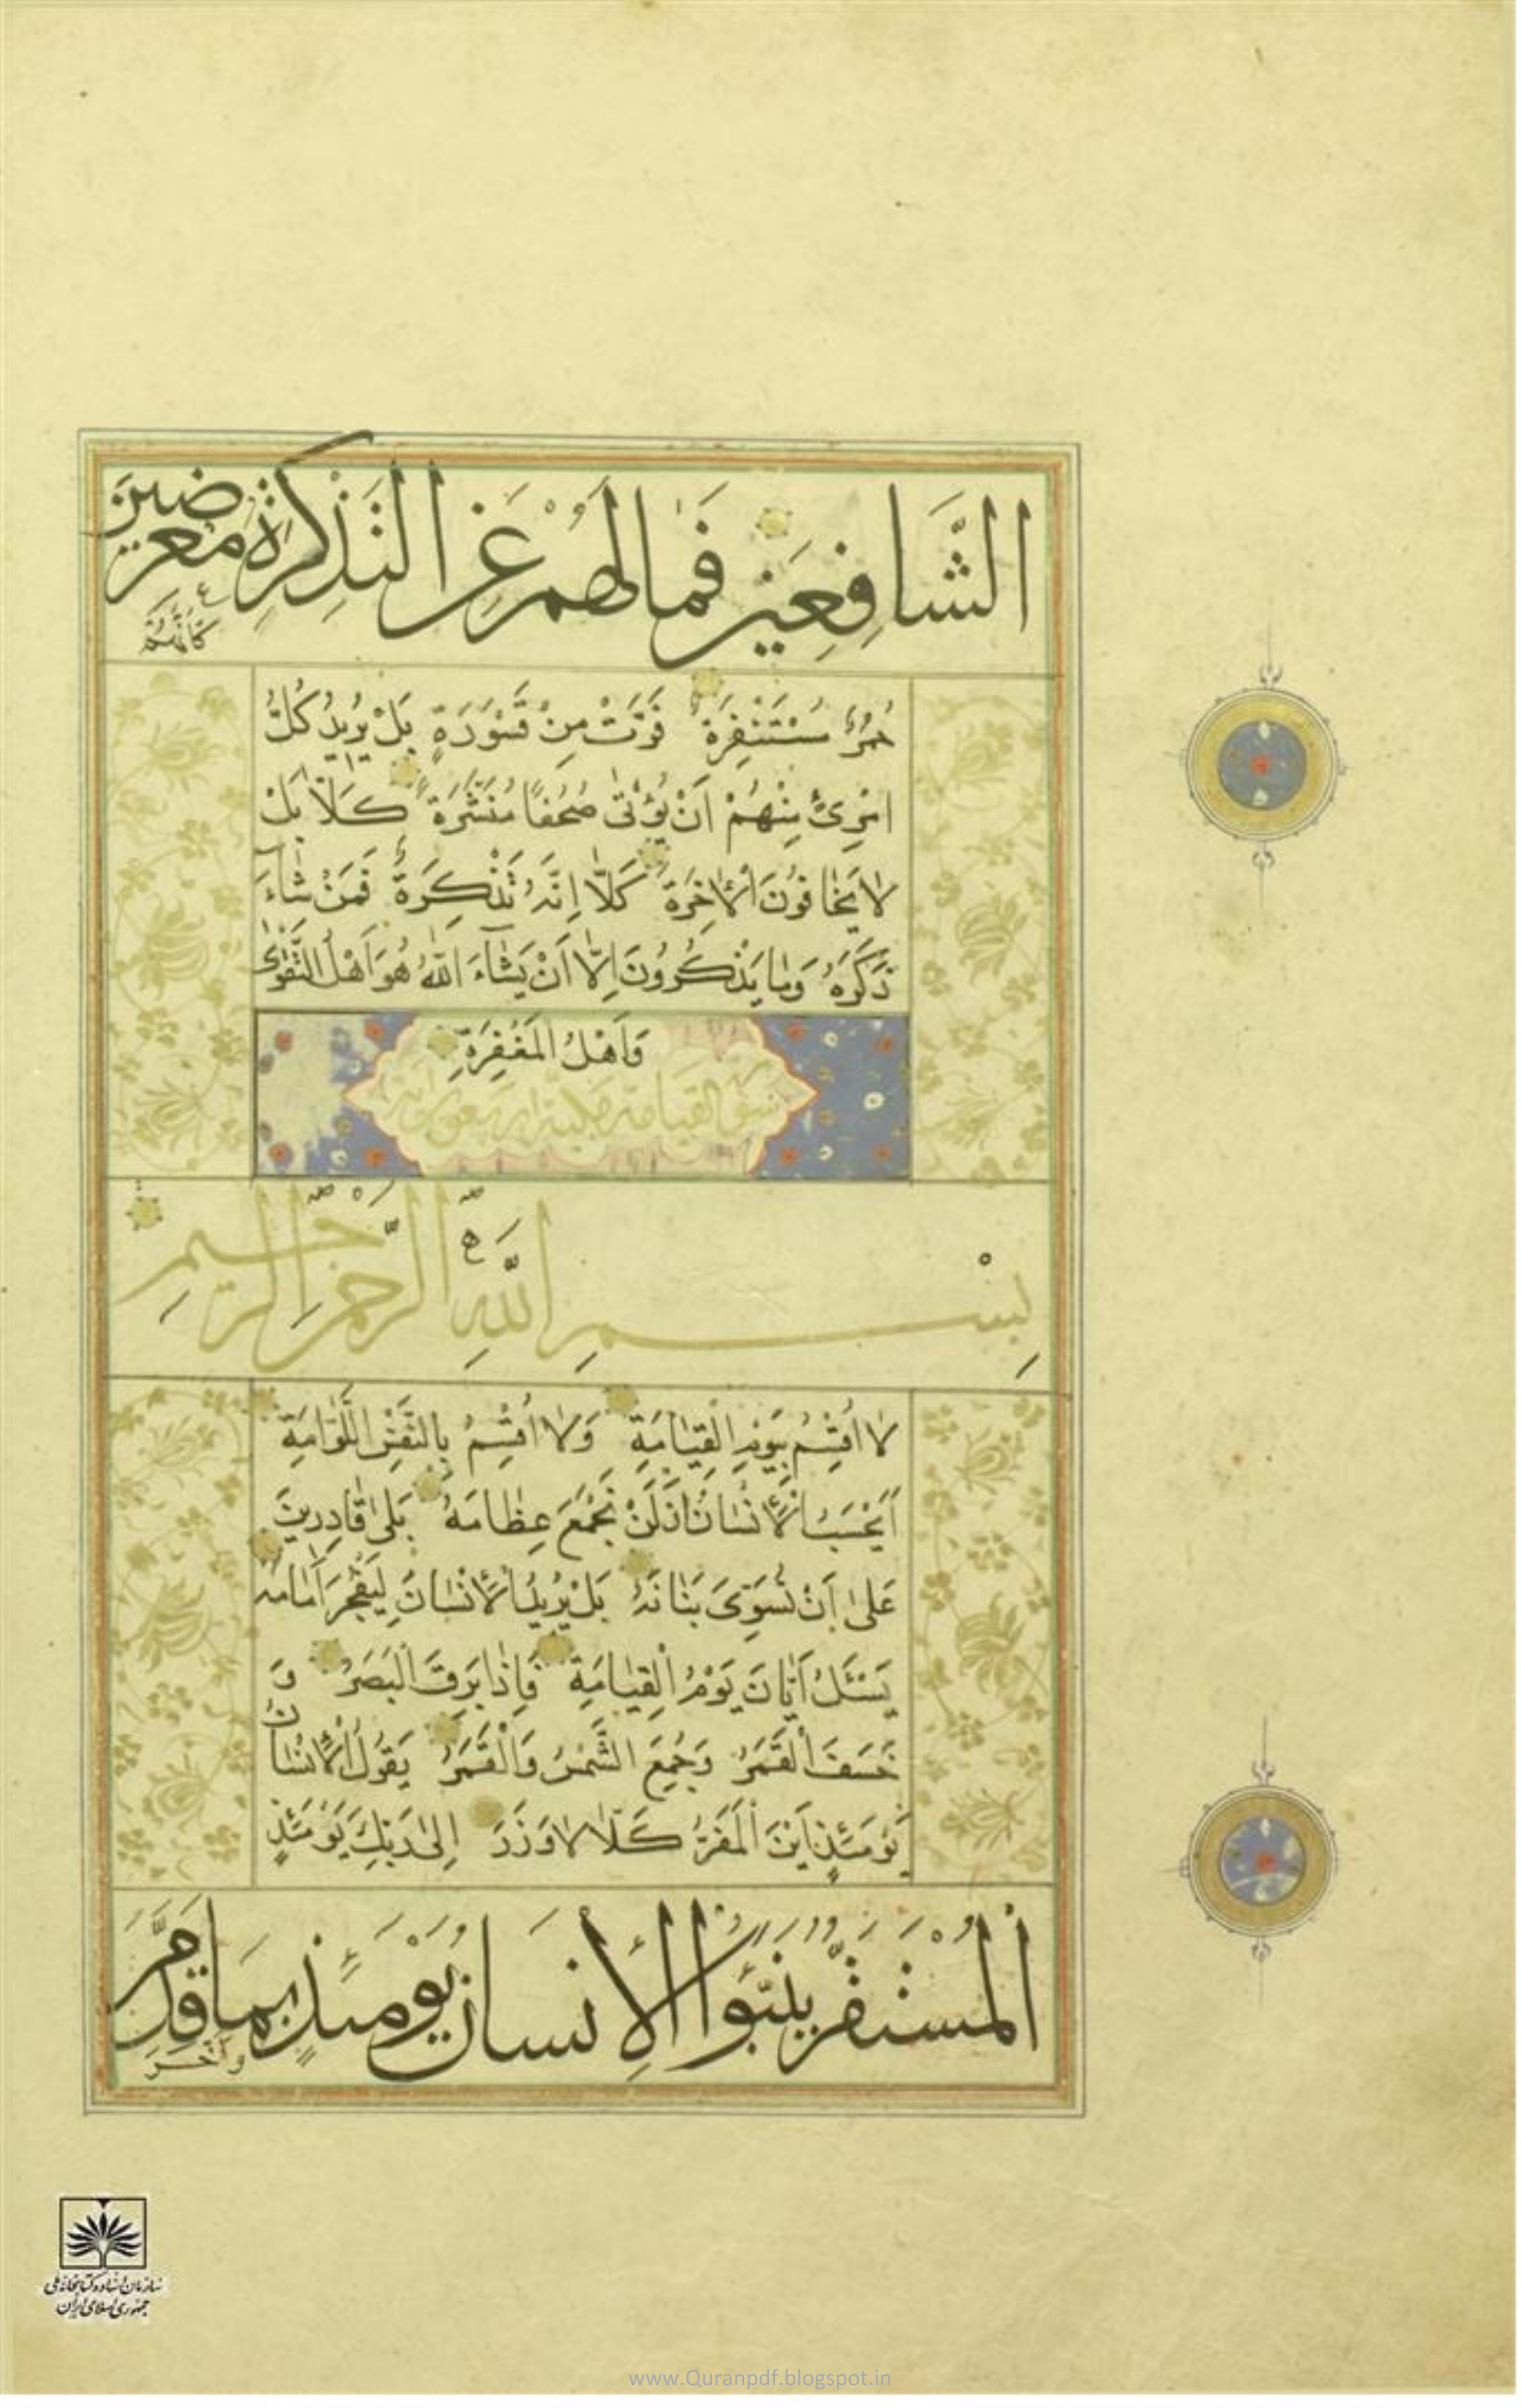 الشَّافِعِينَ فَمَا لَهُمْ عَنِ التَّذْكِرَةِ مُعْرِضِينَ
كَأَنَّهُمْ
حُمُرٌ مُسْتَنْفِرَةٌ فَرَّتْ مِنْ قَسْوَرَةٍ بَلْ يُرِيدُ كُلُّ
امْرِئٍ مِنْهُمْ اَنْ يُؤْتٰى صُحُفًا مُنَشَّرَةً كَلَّا بَلْ
لَا يَخَافُونَ الْاٰخِرَةَ كَلَّا اِنَّهُ تَذْكِرَةٌ فَمَنْ شَآءَ
ذَكَرَهُ وَمَا يَذْكُرُونَ اِلَّا اَنْ يَشَآءَ اللّٰهُ هُوَ اَهْلُ التَّقْوٰى
وَاَهْلُ الْمَغْفِرَةِ
القيامة
بِسْمِ اللّٰهِ الرَّحْمٰنِ الرَّحِيمِ
لَا اُقْسِمُ بِيَوْمِ الْقِيَامَةِ وَلَا اُقْسِمُ بِالنَّفْسِ اللَّوَّامَةِ
اَيَحْسَبُ الْاِنْسَانُ اَلَّنْ نَجْمَعَ عِظَامَهُ بَلٰى قَادِرِينَ
عَلٰى اَنْ نُسَوِّىَ بَنَانَهُ بَلْ يُرِيدُ الْاِنْسَانُ لِيَفْجُرَ اَمَامَهُ
يَسْئَلُ اَيَّانَ يَوْمُ الْقِيَامَةِ فَاِذَا بَرِقَ الْبَصَرُ وَ
خَسَفَ الْقَمَرُ وَجُمِعَ الشَّمْسُ وَالْقَمَرُ يَقُولُ الْاِنْسَانُ
يَوْمَئِذٍ اَيْنَ الْمَفَرُّ كَلَّا لَا وَزَرَ اِلٰى رَبِّكَ يَوْمَئِذٍ
الْمُسْتَقَرُّ يُنَبَّؤُا الْاِنْسَانُ يَوْمَئِذٍ بِمَا قَدَّمَ
وَاَخَّرَ
سازمان اسناد و کتابخانه ملی
جمهوری اسلامی ایران
www.Quranpdf.blogspot.in